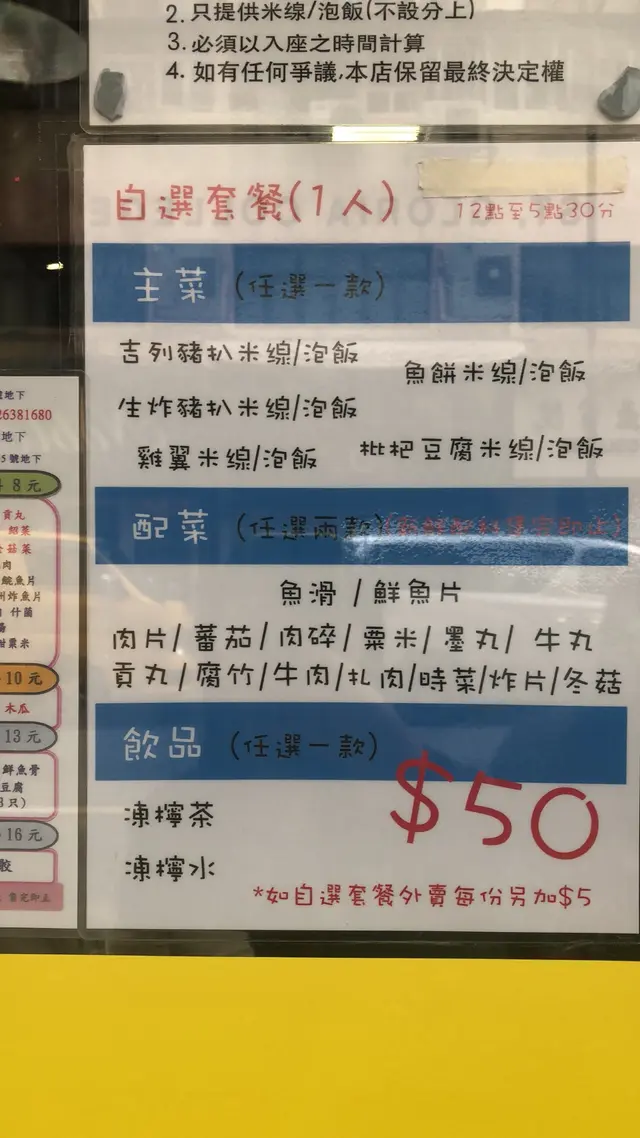 2. 只提供米线/泡飯(不設分上)
3. 必須以入座之時間計算
4. 如有任何爭議,本店保留最終決定權
自選套餐(1人)
12點至5點30分
主菜 (任選一款)
吉列豬扒米線/泡飯
魚餅米線/泡飯
生炸豬扒米線/泡飯
雞翼米線/泡飯 枇杷豆腐米線/泡飯
配菜 (任選兩款)
魚滑 / 鮮魚片
肉片/ 蕃茄/ 肉碎/ 粟米/ 墨丸/ 牛丸
貢丸/腐竹/牛肉/扎肉/時菜/炸片/冬菇
飲品 (任選一款)
凍檸茶
$50
凍檸水
*如自選套餐外賣每份另加$5
號地下
26381680
地下
5號地下
8元
貢丸
菇菜
肉
鯇魚片
炸魚片
什菌
粟米
10元
木瓜
13元
鮮魚骨
豆腐
只)
16元
餃
售完即止